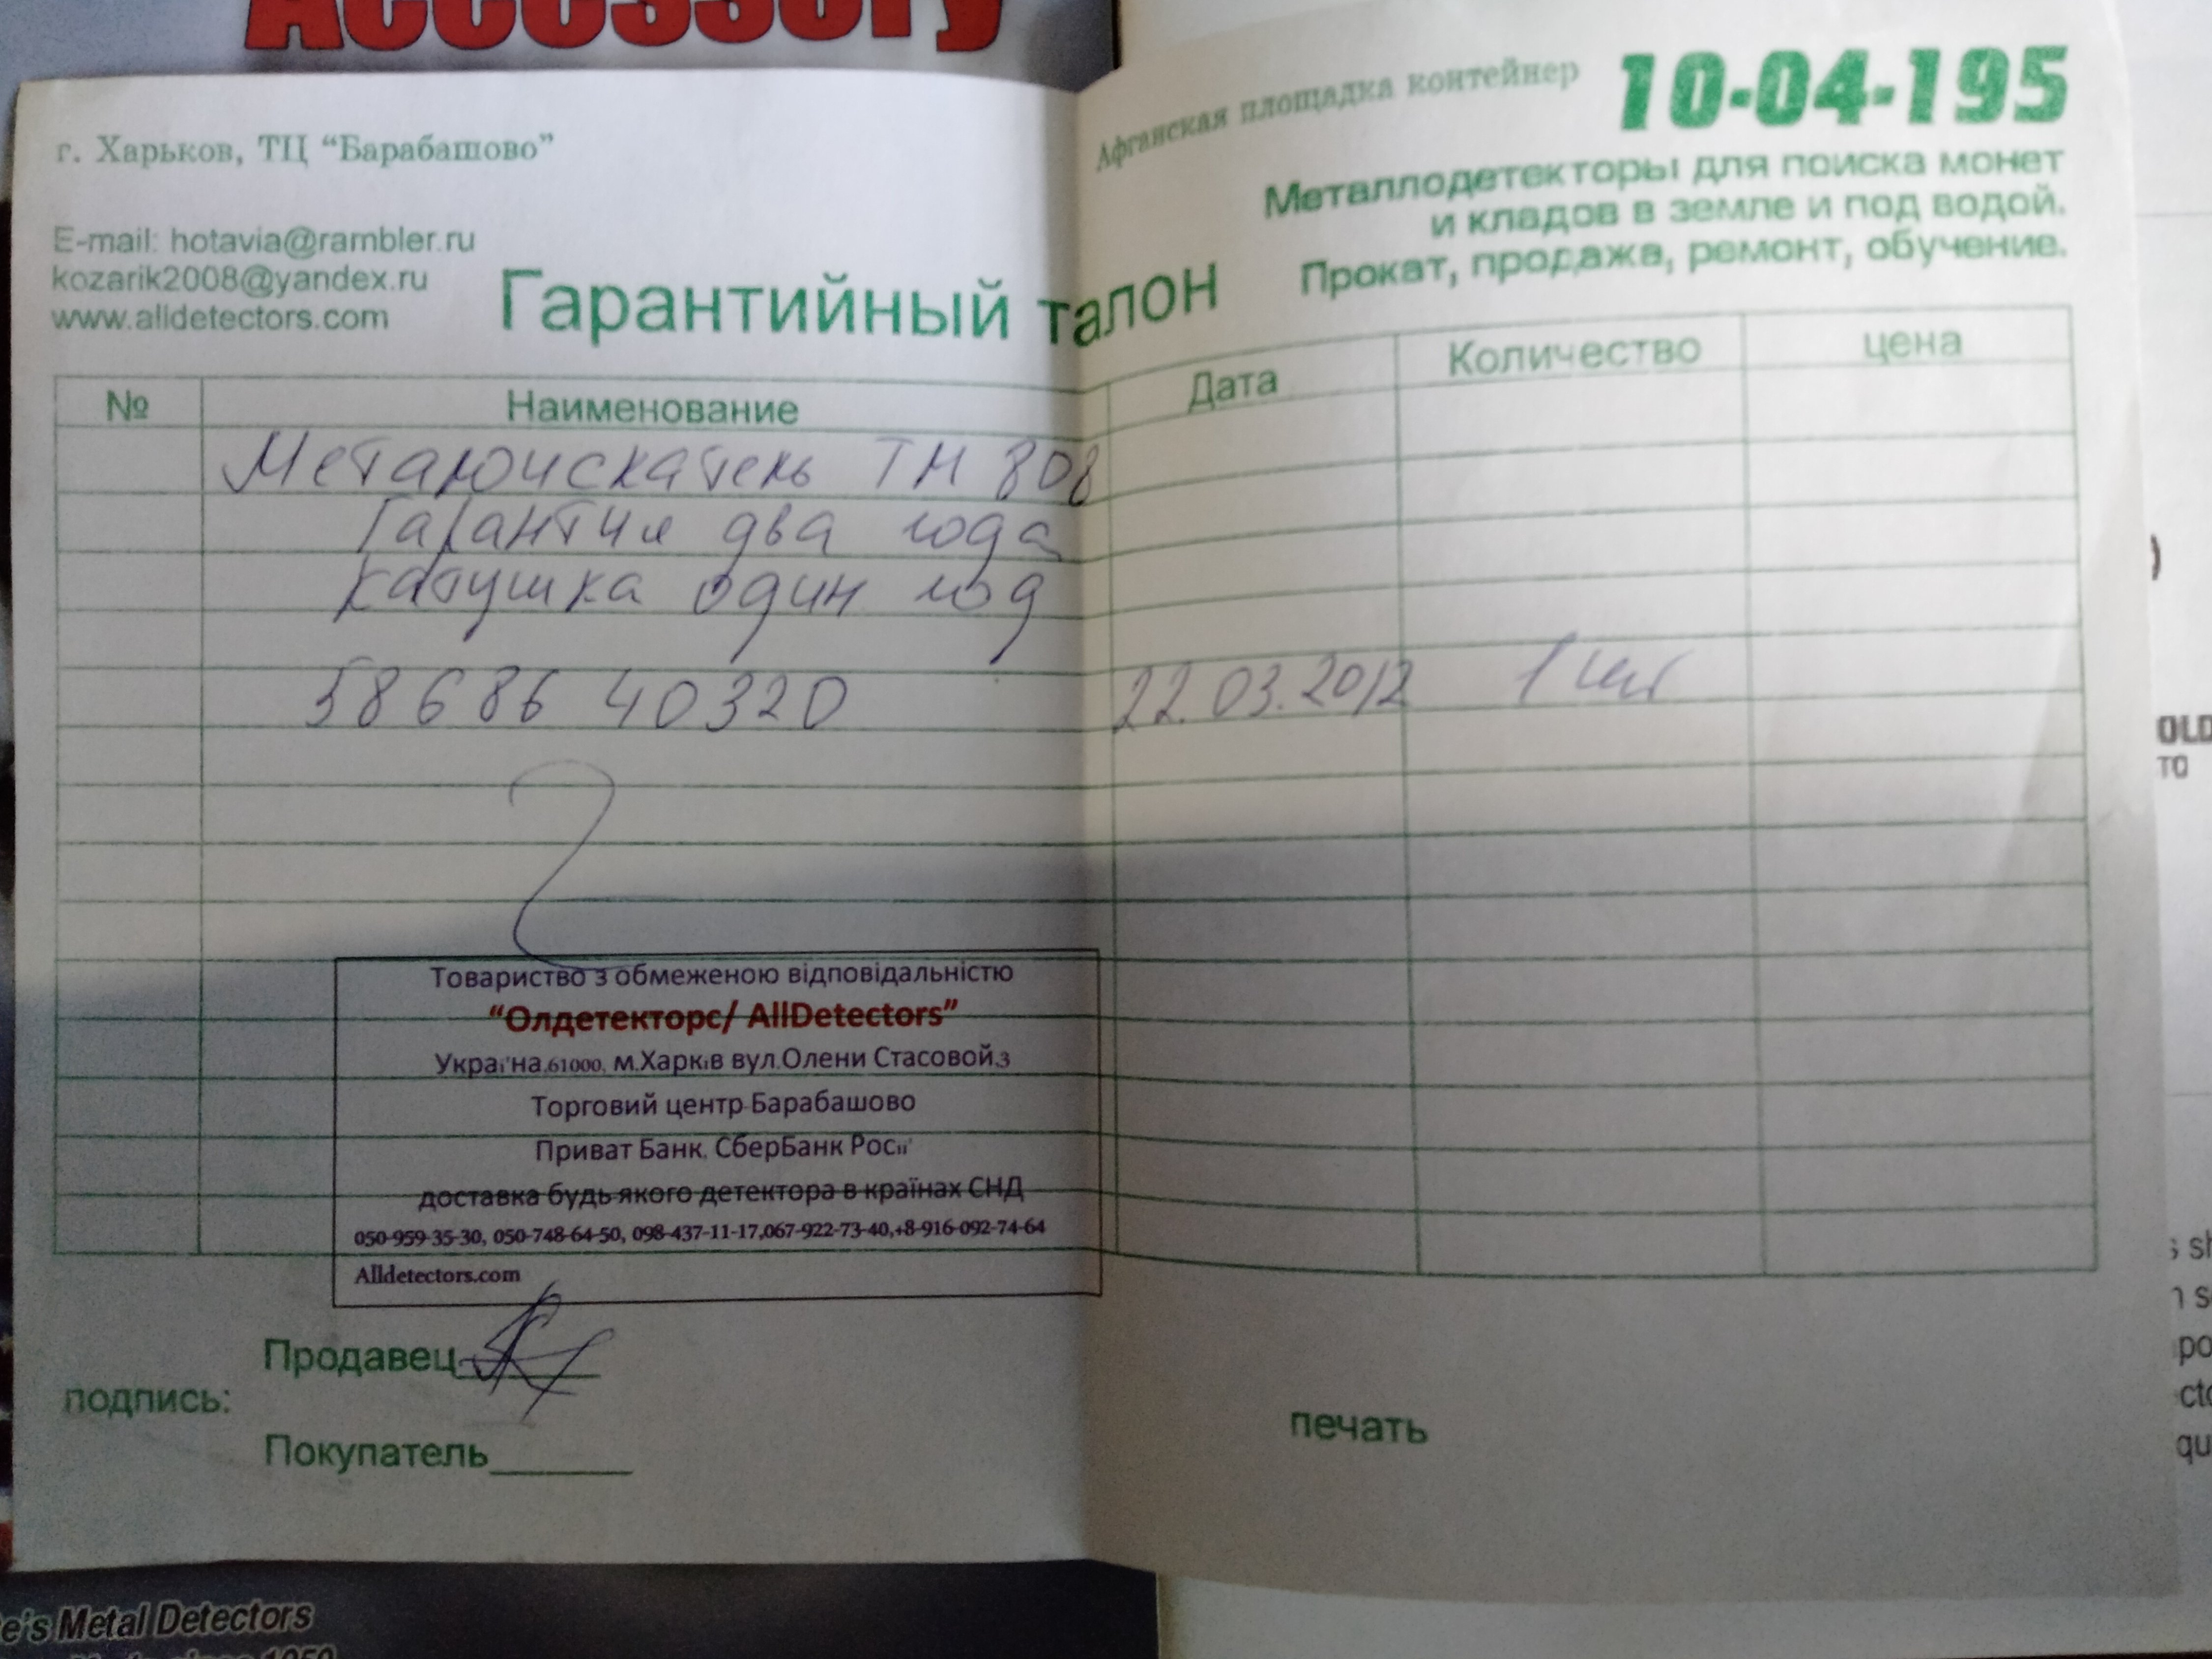 Accessory
г. Харьков, ТЦ “Барабашово”
Афганская площадка контейнер 10-04-195
Металлодетекторы для поиска монет
и кладов в земле и под водой.
Прокат, продажа, ремонт, обучение.
E-mail: hotavia@rambler.ru
kozarik2008@yandex.ru
www.alldetectors.com
Гарантийный талон
№ Наименование Дата Количество цена
Металоискатель ТМ 808
Гарантия два года
катушка один год
58686 40320 22.03.2012 1 шт
Товариство з обмеженою відповідальністю
“Олдетекторс/ AllDetectors”
Україна,61000, м.Харків вул.Олени Стасовой,3
Торговий центр Барабашово
Приват Банк, СберБанк Росії
доставка будь якого детектора в країнах СНД
050-959-35-30, 050-748-64-50, 098-437-11-17,067-922-73-40,+8-916-092-74-64
Alldetectors.com
Продавец
подпись:
Покупатель
печать
OLD
TO
e's Metal Detectors